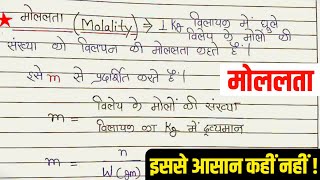 ★ मोललता (Molality) → 1 Kg विलायन में घुले
विलेय के मोलों की
संख्या को विलयन की मोललता कहते हैं।
इसे m से प्रदर्शित करते हैं।
मोललता
m = विलेय के मोलों की संख्या
विलायन का Kg में द्रव्यमान
m = n
W(gm)
इससे आसान कहीं नहीं !